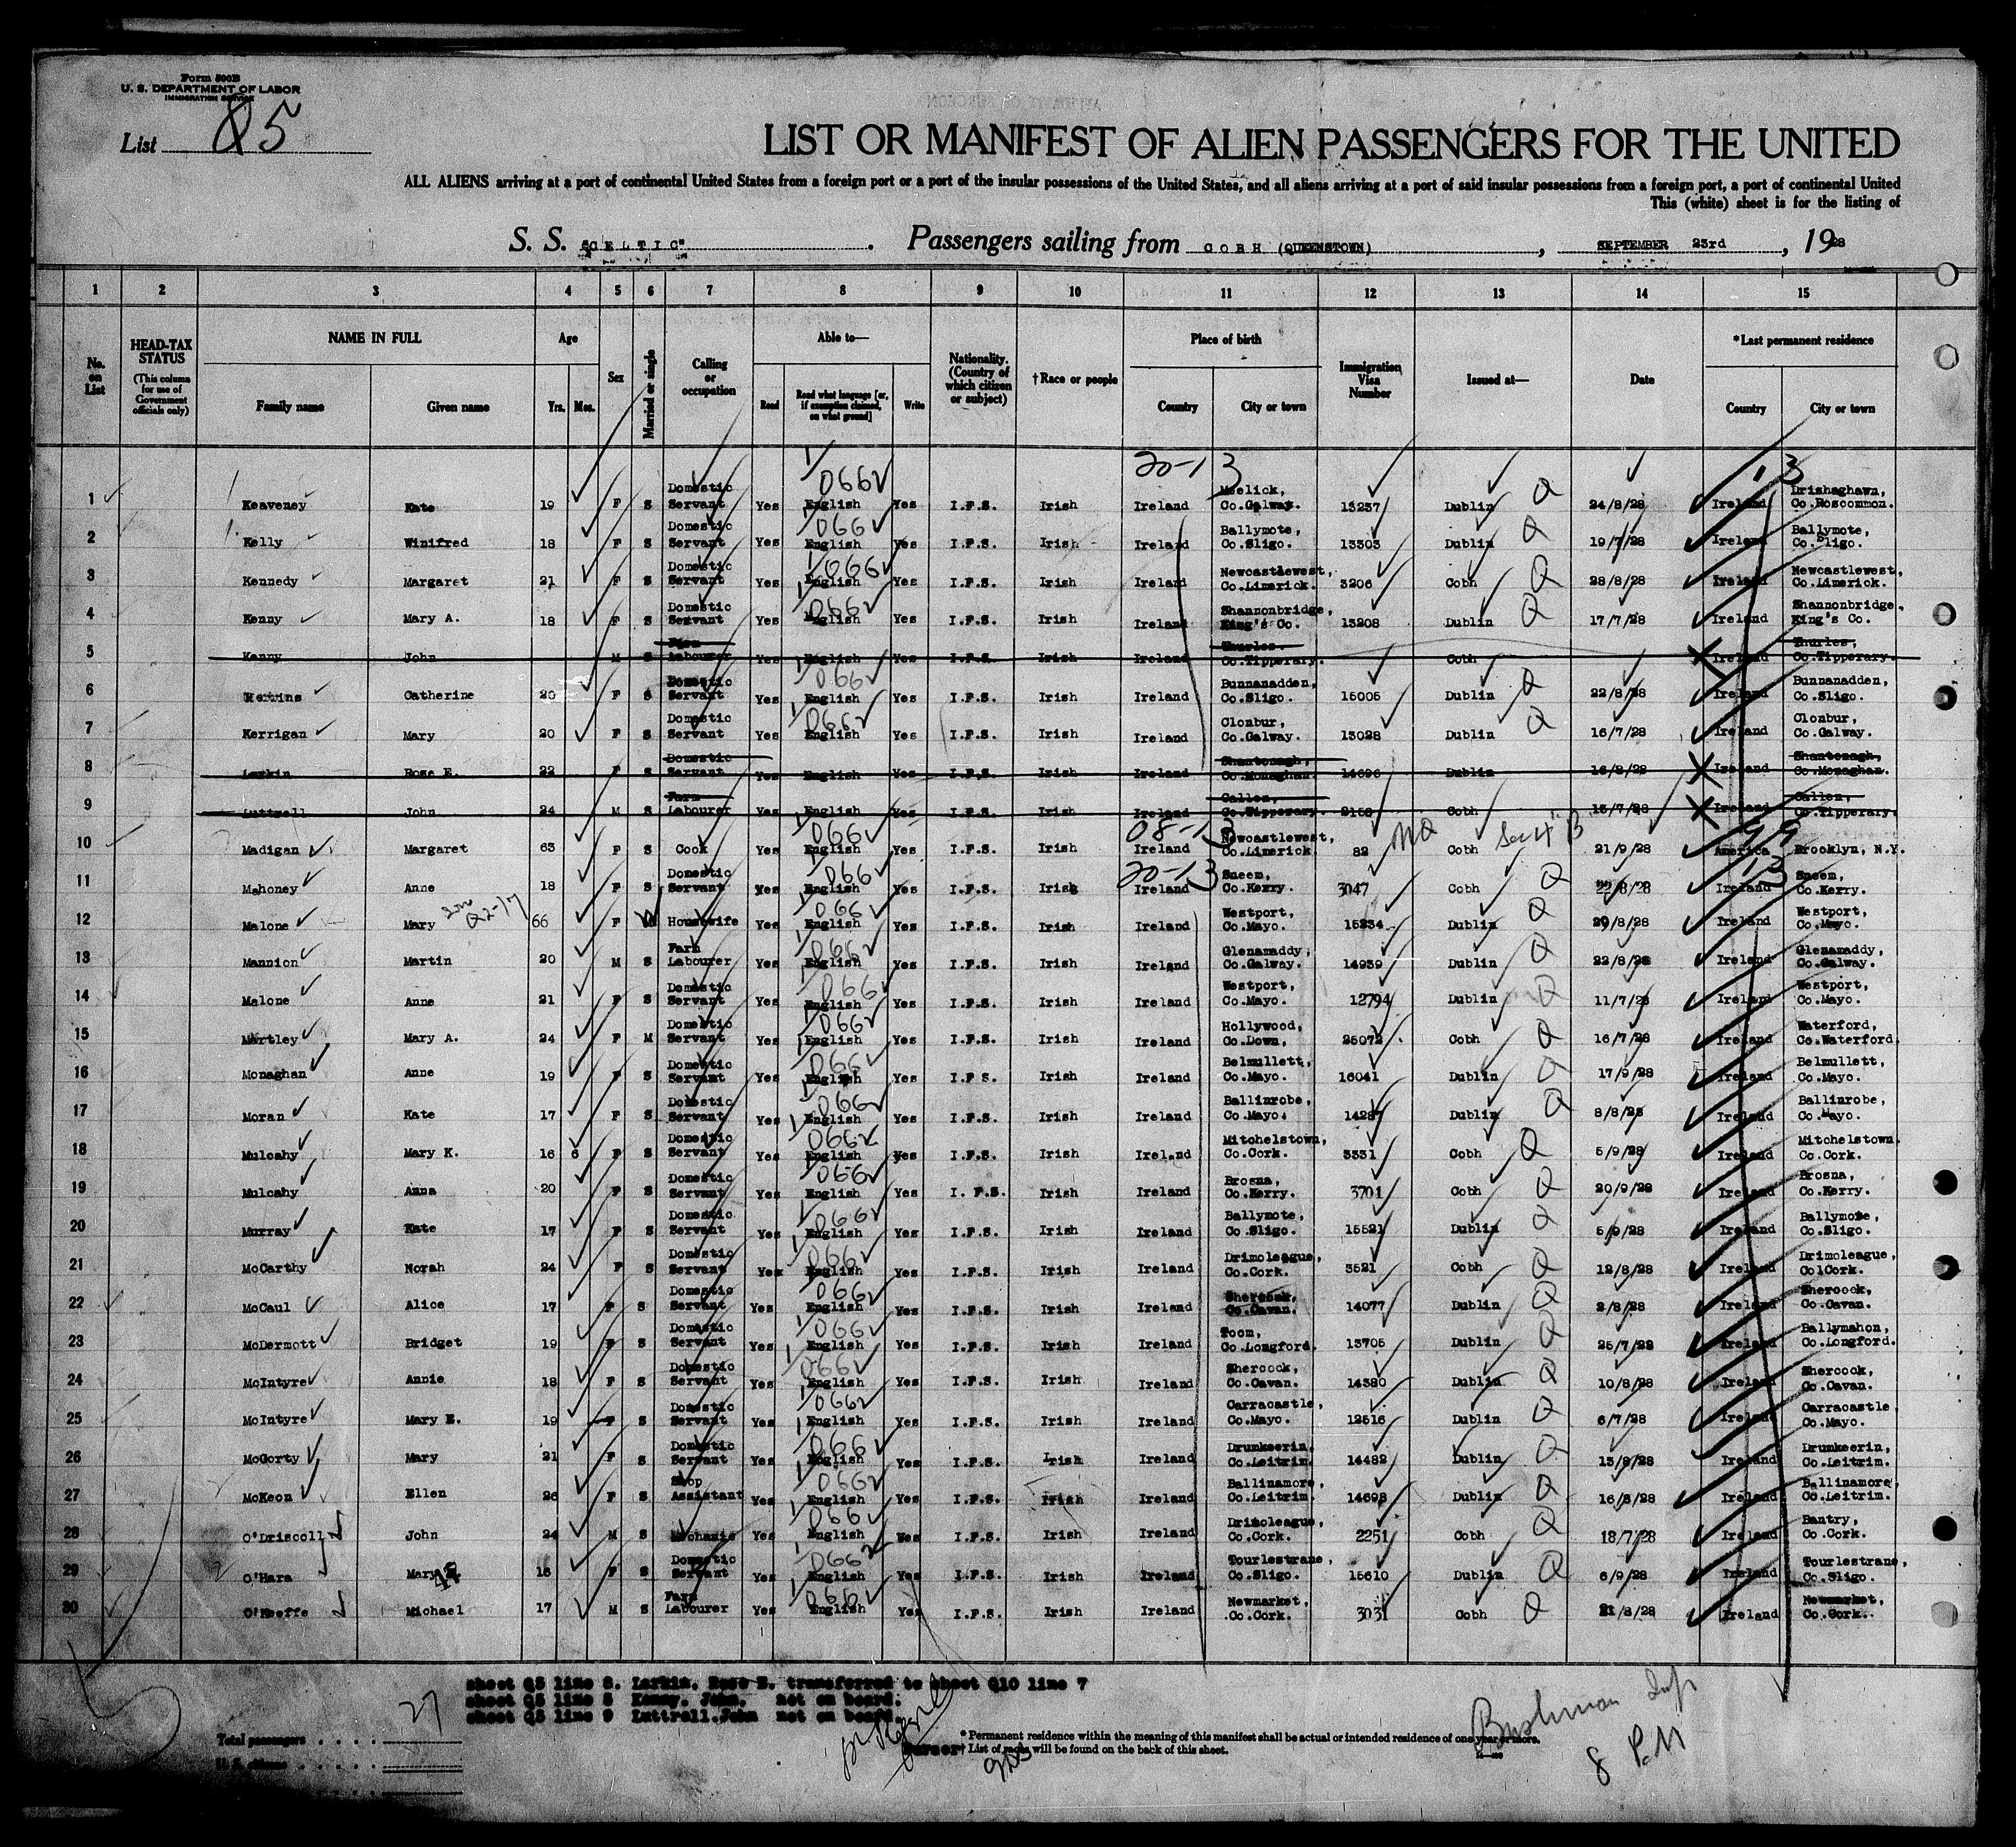 Form 500B
U. S. DEPARTMENT OF LABOR
IMMIGRATION SERVICE
List Q5
LIST OR MANIFEST OF ALIEN PASSENGERS FOR THE UNITED
ALL ALIENS arriving at a port of continental United States from a foreign port or a port of the insular possessions of the United States, and all aliens arriving at a port of said insular possessions from a foreign port, a port of continental United
This (white) sheet is for the listing of
S. S. "CELTIC" . Passengers sailing from COBH (QUEENSTOWN) , SEPTEMBER 23rd , 1928
1 2 3 4 5 6 7 8 9 10 11 12 13 14 15
No. on List HEAD-TAX STATUS (This column for use of Government officials only) NAME IN FULL Age Sex Married or single Calling or occupation Able to— Nationality. (Country of which citizen or subject) †Race or people Place of birth Immigration Visa Number Issued at— Date *Last permanent residence
Family name Given name Yrs. Mos. Read Read what language [or, if exemption claimed, on what ground] Write Country City or town Country City or town
20-1 3 1 3
1 Keaveney Kate 19 F S Domestic Servant Yes English Yes I.F.S. Irish Ireland Meelick, Co.Galway. 15237 Dublin Q 24/8/28 Ireland Drishaghawn, Co.Roscommon.
2 Kelly Winifred 18 F S Domestic Servant Yes English Yes I.F.S. Irish Ireland Ballymote, Co.Sligo. 13303 Dublin Q 19/7/28 Ireland Ballymote, Co.Sligo.
3 Kennedy Margaret 21 F S Domestic Servant Yes English Yes I.F.S. Irish Ireland Newcastlewest, Co.Limerick. 3206 Cobh Q 28/8/28 Ireland Newcastlewest, Co.Limerick.
4 Kenny Mary A. 18 F S Domestic Servant Yes English Yes I.F.S. Irish Ireland Shannonbridge, King's Co. 13208 Dublin Q 17/7/28 Ireland Shannonbridge, King's Co.
5 Kenny John M S Farm Labourer Yes English Yes I.F.S. Irish Ireland Thurles. Co.Tipperary. Cobh Ireland Thurles, Co.Tipperary.
6 Catherine 20 F S Domestic Servant Yes English Yes I.F.S. Irish Ireland Bunnanadden, Co.Sligo. 15005 Dublin Q 22/8/28 Ireland Bunnanadden, Co.Sligo.
7 Kerrigan Mary 20 F S Domestic Servant Yes English Yes I.F.S. Irish Ireland Clonbur, Co.Galway. 13028 Dublin Q 16/7/28 Ireland Clonbur, Co.Galway.
8 Larkin Rose E. 22 F S Domestic Servant Yes English Yes I.F.S. Irish Ireland Shantonagh, Co.Monaghan. 14696 Dublin 16/8/28 Ireland Shantonagh, Co.Monaghan.
9 Luttrell John 24 M S Farm Labourer Yes English Yes I.F.S. Irish Ireland Callen, Co.Tipperary. 2168 Cobh 13/7/28 Ireland Callen, Co.Tipperary.
10 Madigan Margaret 63 F S Cook Yes English Yes I.F.S. Irish Ireland Newcastlewest, Co.Limerick 82 NQ Cobh Sec 4 B 21/9/28 America Brooklyn, N.Y.
11 Mahoney Anne 18 F S Domestic Servant Yes English Yes I.F.S. Irish Ireland Sneem, Co.Kerry. 3047 Cobh Q 22/8/28 Ireland Sneem, Co.Kerry.
12 Malone Mary 66 F W Housewife Yes English Yes I.F.S. Irish Ireland Westport, Co.Mayo. 15234 Dublin Q 29/8/28 Ireland Westport, Co.Mayo.
13 Mannion Martin 20 M S Farm Labourer Yes English Yes I.F.S. Irish Ireland Glenamaddy, Co.Galway. 14939 Dublin Q 22/8/28 Ireland Glenamaddy, Co.Galway.
14 Malone Anne 21 F S Domestic Servant Yes English Yes I.F.S. Irish Ireland Westport, Co.Mayo. 12794 Dublin Q 11/7/28 Ireland Westport, Co.Mayo.
15 Martley Mary A. 24 F M Domestic Servant Yes English Yes I.F.S. Irish Ireland Hollywood, Co.Down, 25072 Cobh Q 16/7/28 Ireland Waterford, Co.Waterford.
16 Monaghan Anne 19 F S Domestic Servant Yes English Yes I.F S. Irish Ireland Belmullett, Co.Mayo. 16041 Dublin Q 17/9/28 Ireland Belmullett, Co.Mayo.
17 Moran Kate 17 F S Domestic Servant Yes English Yes I.F.S. Irish Ireland Ballinrobe, Co.Mayo. 14287 Dublin Q 8/8/28 Ireland Ballinrobe, Co.Mayo.
18 Mulcahy Mary K. 16 6 F S Domestic Servant Yes English Yes I.F.S. Irish Ireland Mitchelstown, Co.Cork. 3331 Cobh Q 5/9/28 Ireland Mitchelstown. Co.Cork.
19 Mulcahy Anna 20 F S Domestic Servant Yes English Yes I. F.S. Irish Ireland Brosna, Co.Kerry. 3701 Cobh Q 20/9/28 Ireland Brosna, Co.Kerry.
20 Murray Kate 17 F S Domestic Servant Yes English Yes I.F.S. Irish Ireland Ballymote, Co.Sligo. 15521 Dublin Q 5/9/28 Ireland Ballymote, Co.Sligo.
21 McCarthy Norah 24 F S Domestic Servant Yes English Yes I.F.S. Irish Ireland Drimoleague, Co.Cork. 3521 Cobh Q 12/8/28 Ireland Drimoleague, Co.Cork.
22 McCaul Alice 17 F S Domestic Servant Yes English Yes I.F.S. Irish Ireland Shercock, Co.Cavan. 14077 Dublin Q 2/8/28 Ireland Shercock, Co.Cavan.
23 McDermott Bridget 19 F S Domestic Servant Yes English Yes I.F.S. Irish Ireland Toom, Co.Longford. 13705 Dublin Q 25/7/28 Ireland Ballymahon, Co.Longford.
24 McIntyre Annie 18 F S Domestic Servant Yes English Yes I.F.S. Irish Ireland Shercock, Co.Cavan. 14380 Dublin Q 10/8/28 Ireland Shercock, Co.Cavan.
25 McIntyre Mary E. 19 F S Domestic Servant Yes English Yes I.F.S. Irish Ireland Carracastle, Co.Mayo. 12516 Dublin Q 6/7/28 Ireland Carracastle Co.Mayo.
26 McGorty Mary 21 F S Domestic Servant Yes English Yes I.F.S. Irish Ireland Drumkeerin, Co.Leitrim. 14482 Dublin Q 13/8/28 Ireland Drumkeerin, Co.Leitrim.
27 McKeon Ellen 26 F S Shop Assistant Yes English Yes I.F.S. Irish Ireland Ballinamore, Co.Leitrim. 14698 Dublin Q 16/8/28 Ireland Ballinamore, Co.Leitrim.
28 O'Driscoll John 24 M S Mechanic Yes English Yes I.F.S. Irish Ireland Drimoleague, Co.Cork. 2251 Cobh Q 18/7/28 Ireland Bantry, Co.Cork.
29 O'Hara Mary 18 F S Domestic Servant Yes English Yes I.F.S. Irish Ireland Tourlestrane, Co.Sligo. 15610 Dublin Q 6/9/28 Ireland Tourlestrane, Co.Sligo.
30 O'Keeffe Michael 17 M S Farm Labourer Yes English Yes I.F.S. Irish Ireland Newmarket, Co.Cork. 3031 Cobh Q 21/8/28 Ireland Newmarket, Co.Cork.
sheet Q5 line 8. Larkin. Rose E. transferred to sheet Q10 line 7
sheet Q5 line 5 Kenny. John. not on board.
sheet Q5 line 9 Luttrell.John not on board.
Total passengers 27
U. S. citizens
* Permanent residence within the meaning of this manifest shall be actual or intended residence of one year or more.
† List of races will be found on the back of this sheet.
Bushman Insp
8 P.M